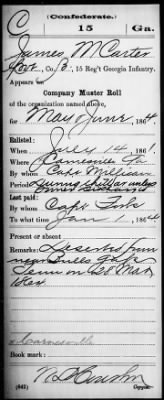 (Confederate.)
C 15 Ga.
James McCarter
Pvt., Co. B, 15 Reg't Georgia Infantry.
Appears on
Company Muster Roll
of the organization named above,
for May & June, 1864
Enlisted:
When July 14 1861
Where
By whom Capt
Period
Last paid:
By whom Capt
To what time Jan 1, 1864
Present or absent
Remarks: Deserted from
near Bulls Gap
Tenn on 28 Mar
Book mark:
(642) Copyist.